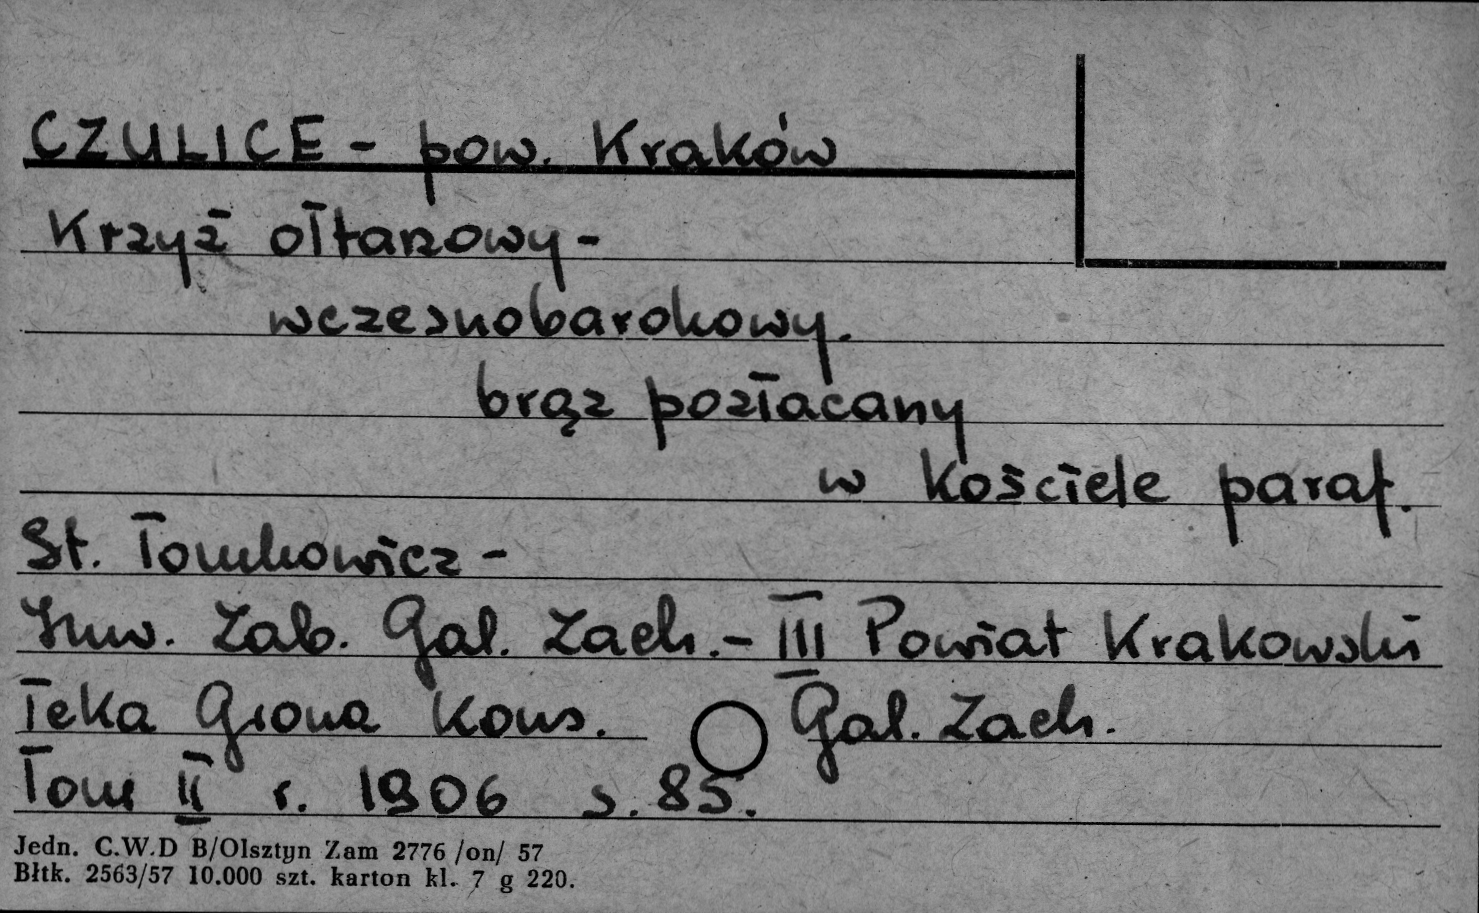 CZULICE - pow. Kraków
Krzyż ołtarzowy -
wczesnobarokowy.
brąz pozłacany
w kościele paraf.
St. Tomkowicz -
Inw. Zab. Gal. Zach. - III Powiat Krakowski
Teka Grona Kons. Gal. Zach.
Tom II r. 1906 s. 85.
Jedn. C.W.D B/Olsztyn Zam 2776 /on/ 57
Błtk. 2563/57 10.000 szt. karton kl. 7 g 220.